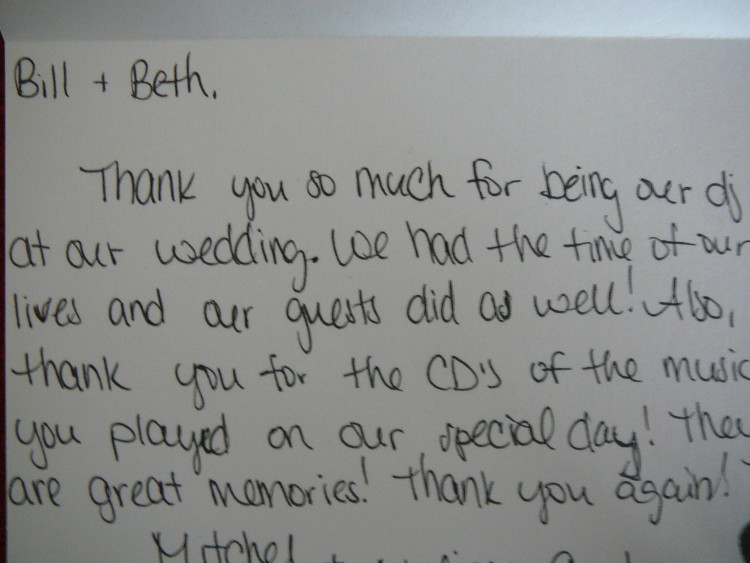 Bill + Beth,
Thank you so much for being our dj
at our wedding. We had the time of our
lives and our guests did as well! Also,
thank you for the CD's of the music
you played on our special day! They
are great memories! Thank you again!
Mitchel